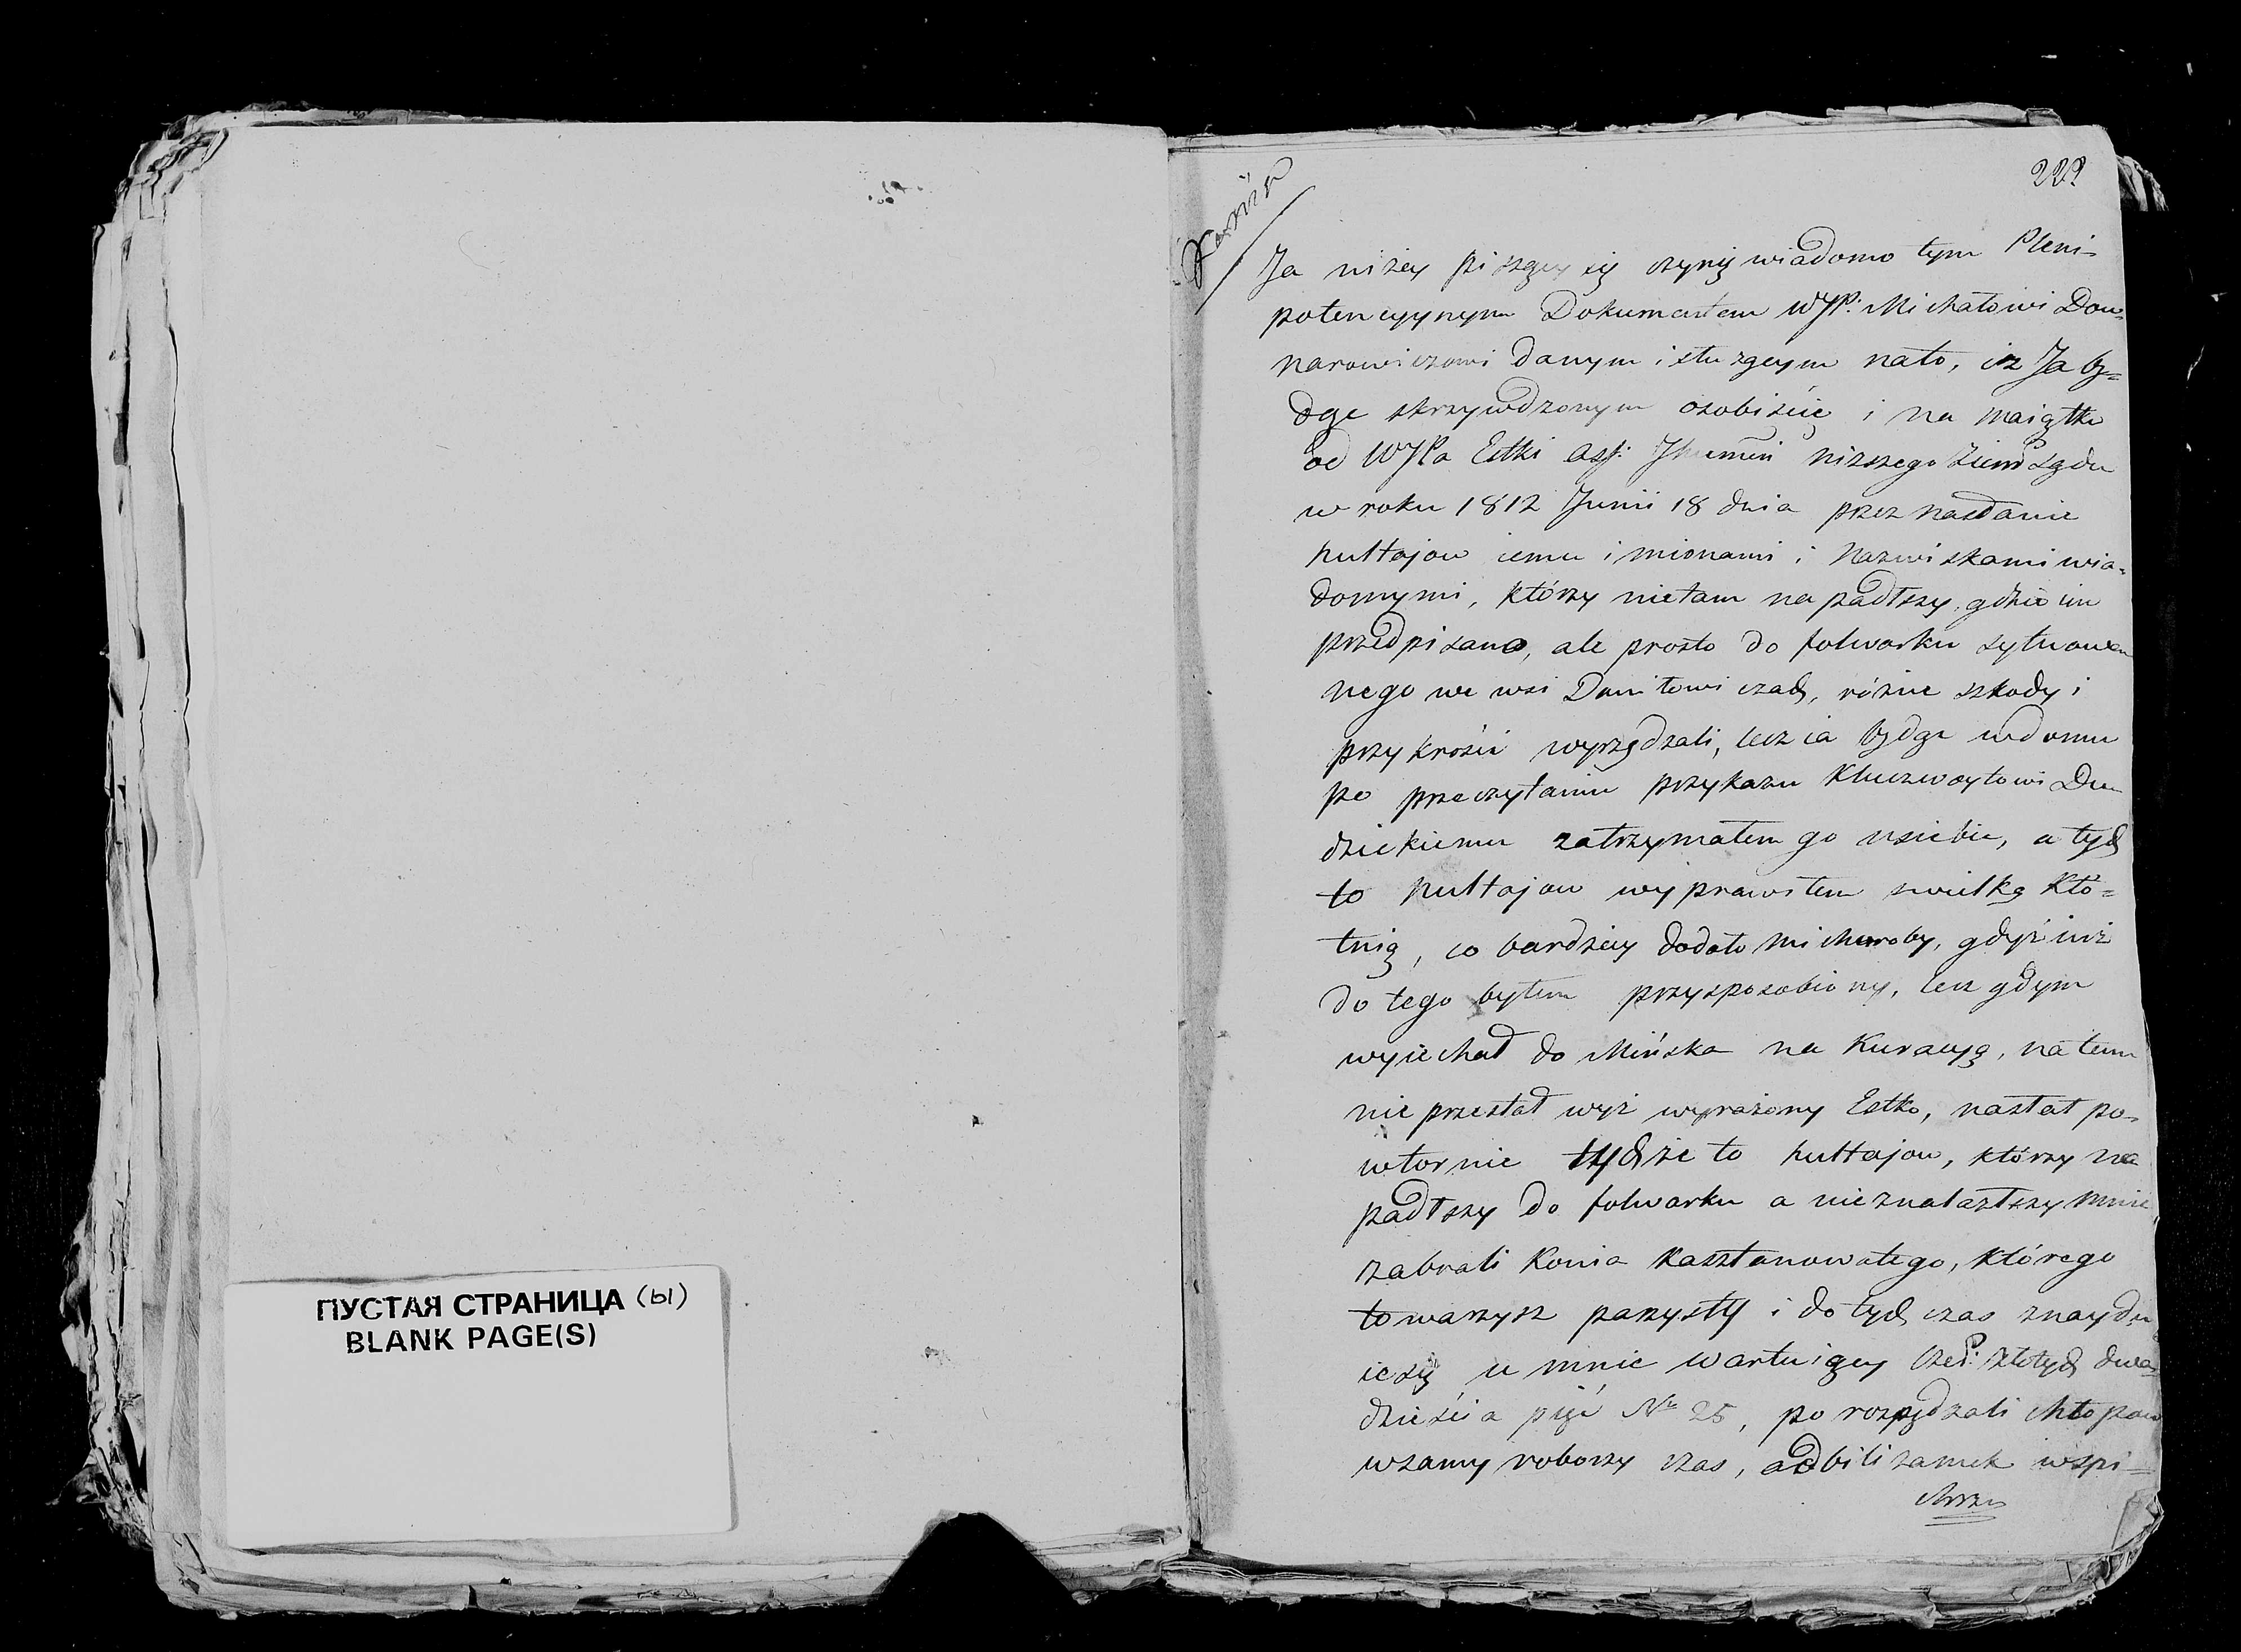 ПУСТАЯ СТРАНИЦА (Ы)
BLANK PAGE(S)
Ja niżey piszący się czynię wiadomo tym Pleni-
potencyynym Dokumentem WJP: Michałowi Dow-
narowiczowi danym i służącym nato, iż Ja bę=
dąc skrzywdzonym osobiście i na maiątku
od WJPa Estki Ass: Ihumeń niższego Ziem Sądu
w roku 1812 Junii 18 dnia przez nasłanie
hultajow iemu imionami i nazwiskami wia-
domymi, którzy nietam napadłszy, gdzie im
przedpisano, ale prosto do folwarku sytuowa-
nego we wsi Daniłowiczach, różne szkody i
przykrości wyrządzali, lecz ia będąc w domu
po przeczytaniu przykazu Kluczwoytowi Du-
dzickiemu zatrzymałem go u siebie, a tych
to hultajow wyprawiłem z wielką kłó=
tnią, co bardziey dodało mi choroby, gdyż iuż
do tego byłem przysposobiony, lecz gdym
wyiechał do Mińska na Kuracyą, na tem
nie przestał wyż wyrażony Estko, nasłał po-
wtornie tychże to hultajow, którzy na
padłszy do folwarku a nieznalazłszy mnie
zabrali Konia kasztanowatego, którego
towarzysz parzysty i do tych czas znaydu
ie się u mnie wartuiący Czer: złotych dwa-
dzieścia pięć N 25, porozpędzali chłopow
w samy roboczy czas, odbili zamek w spi=
chrzu